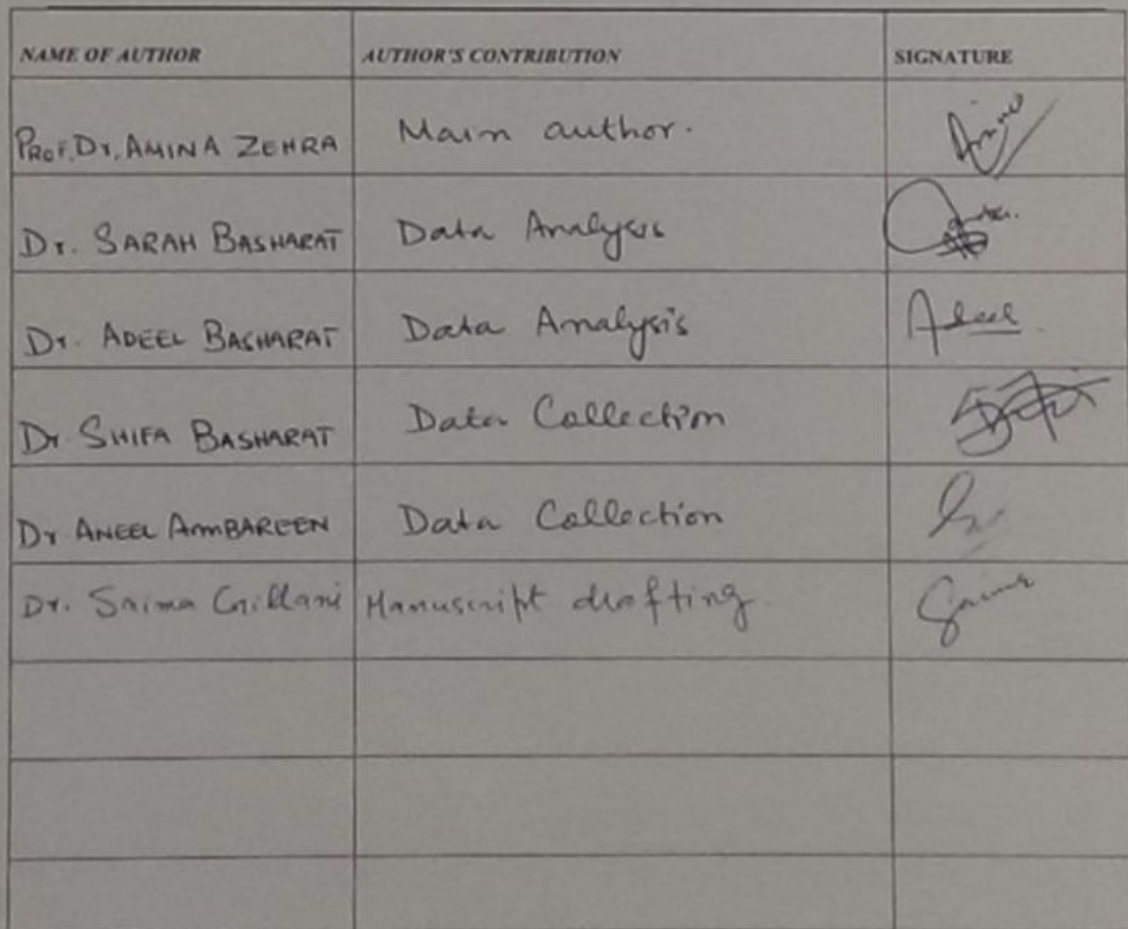 NAME OF AUTHOR AUTHOR'S CONTRIBUTION SIGNATURE
PROF. Dr. AMINA ZEHRA Main author.
Dr. SARAH BASHARAT Data Analysis
Dr. ADEEL BASHARAT Data Analysis Adeel
Dr SHIFA BASHARAT Data Collection
Dr ANEEL AMBAREEN Data Collection
Dr. Saima Gillani Manuscript drafting Saima